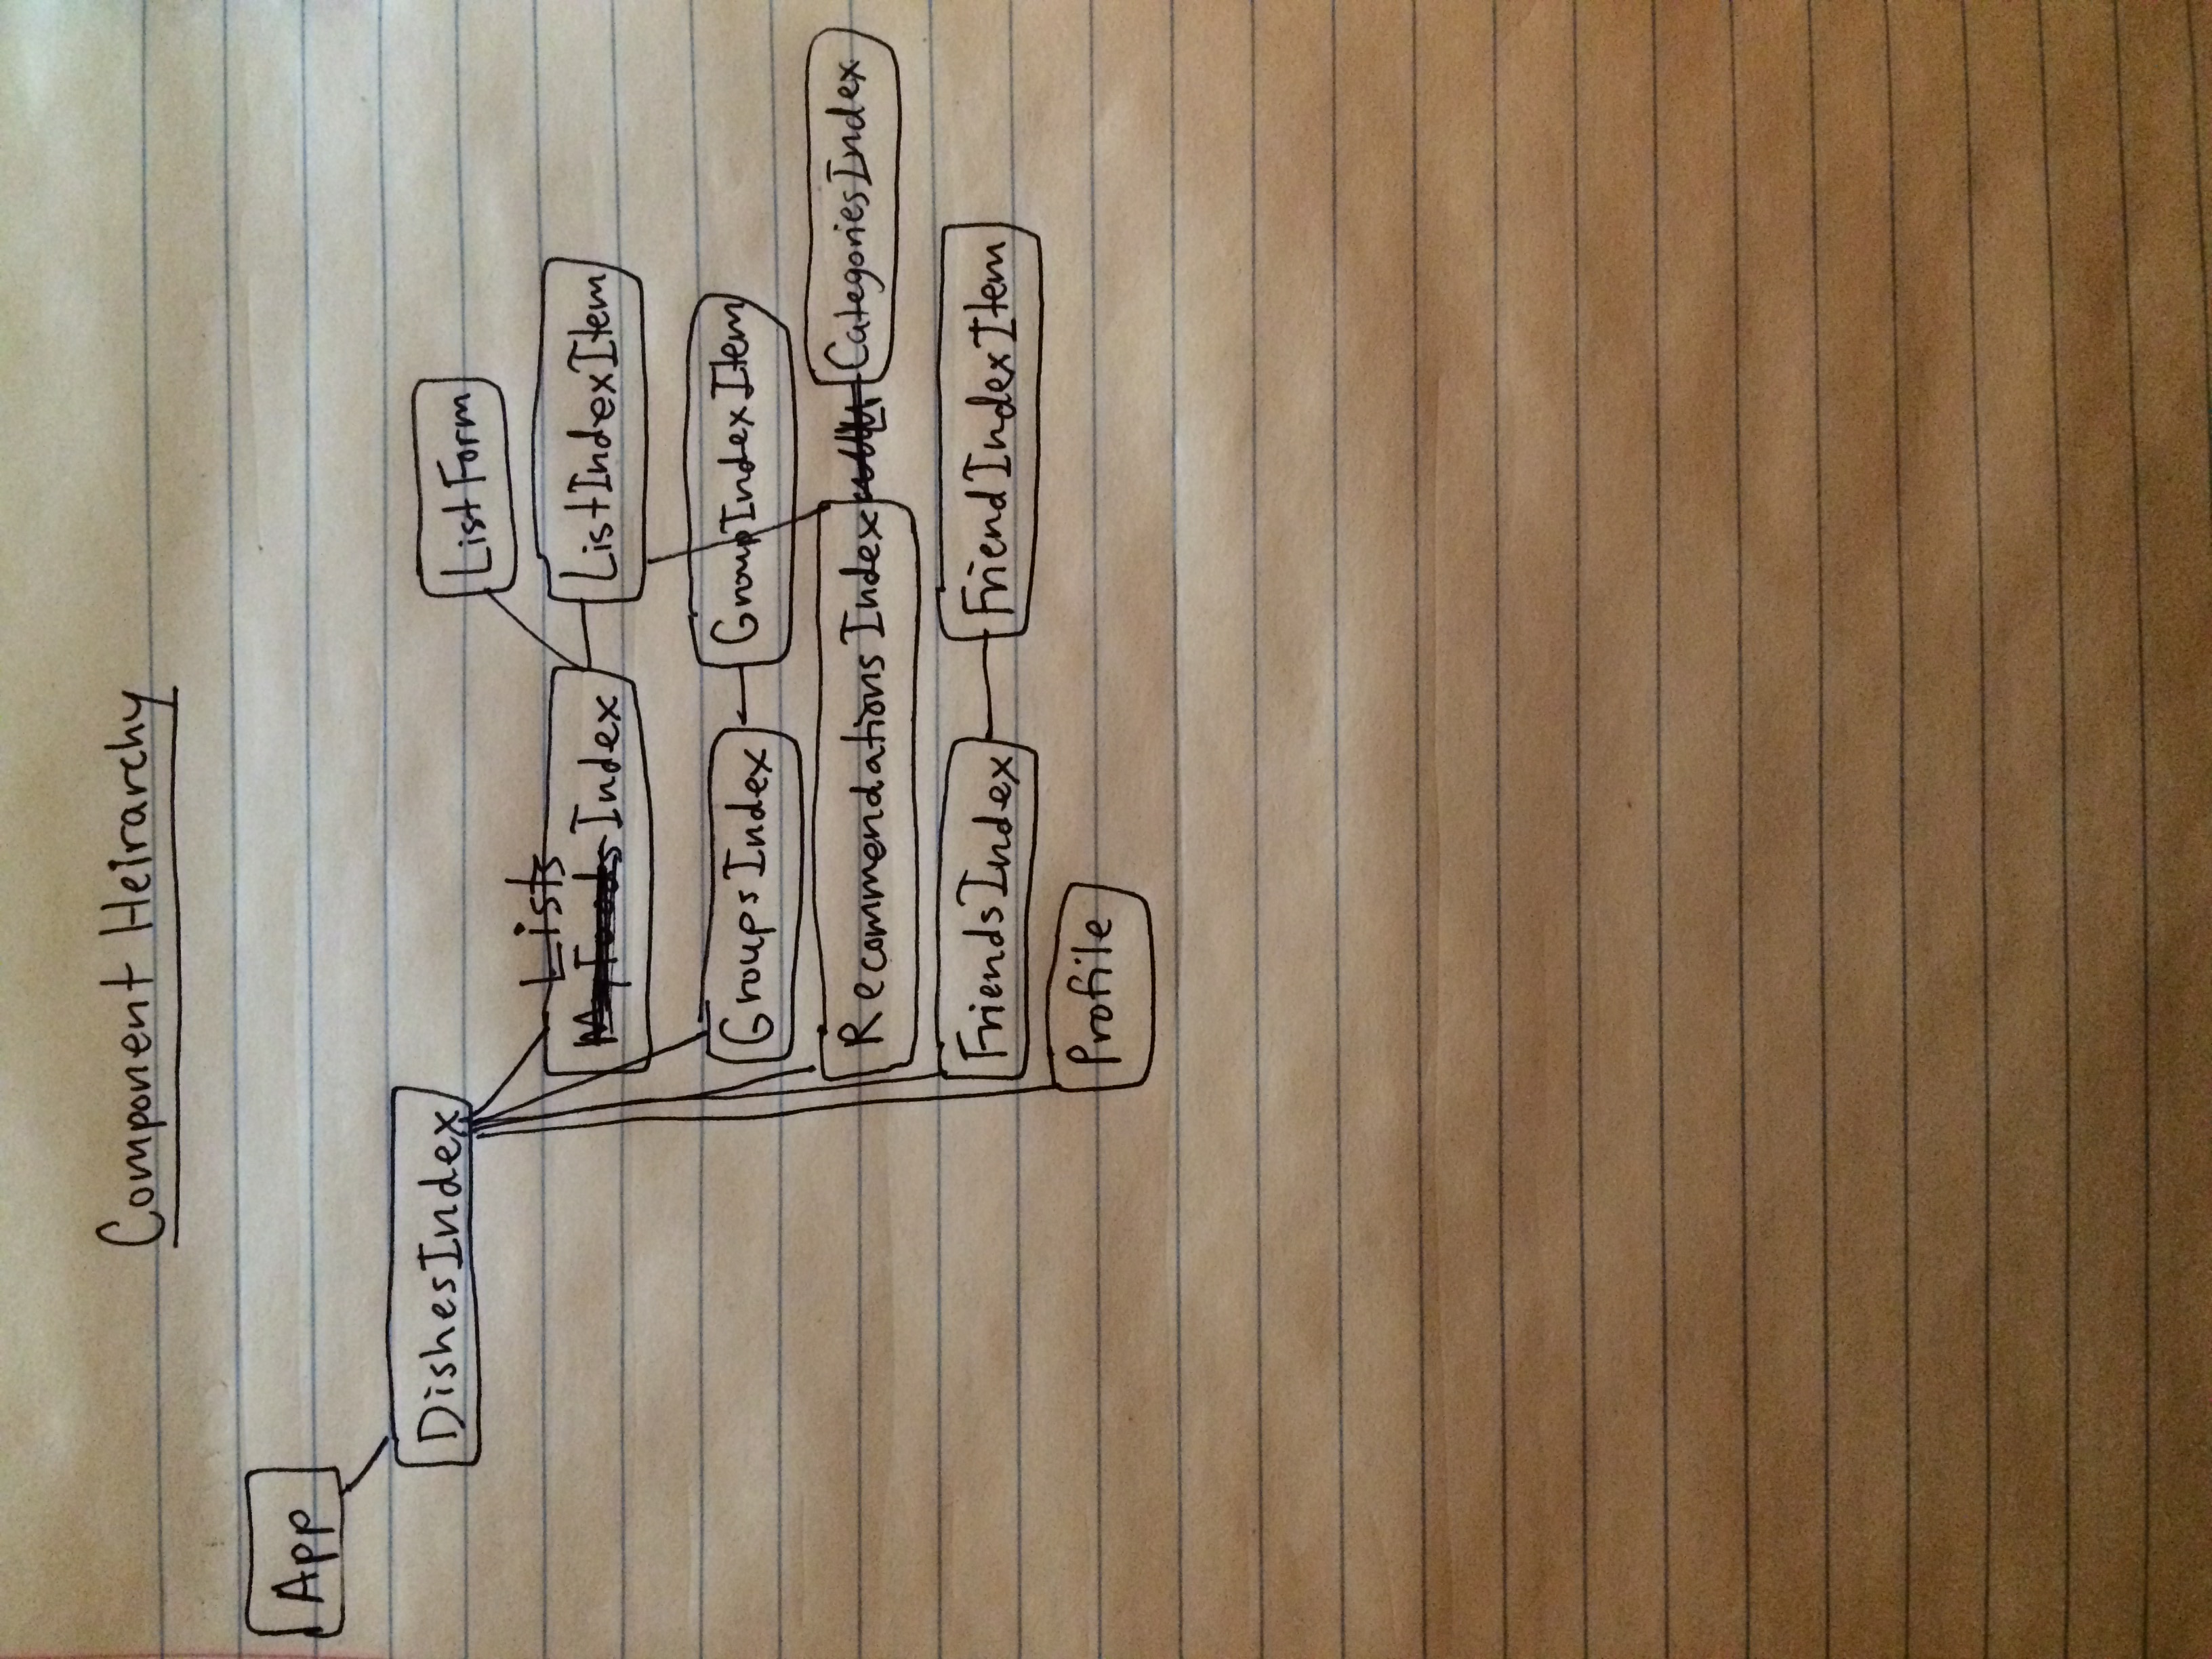 Component Heirarchy
App
DishesIndex
ListForm
Lists
MyFoods Index
ListIndexItem
GroupsIndex
GroupIndexItem
RecommendationsIndex
CategoriesIndex
FriendsIndex
FriendIndexItem
Profile